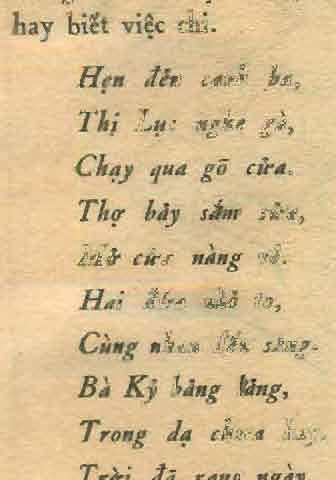 hay biết việc chi.
Hẹn đến canh ba,
Thị Lục nghe gà,
Chạy qua gõ cửa.
Thợ bảy sắm sửa,
Mở cửa nàng vô.
Hai nhỏ to,
Cùng nhau đến sáng.
Bà Kỷ bảng lảng,
Trong dạ chưa hay.
Trời đã rạng ngày